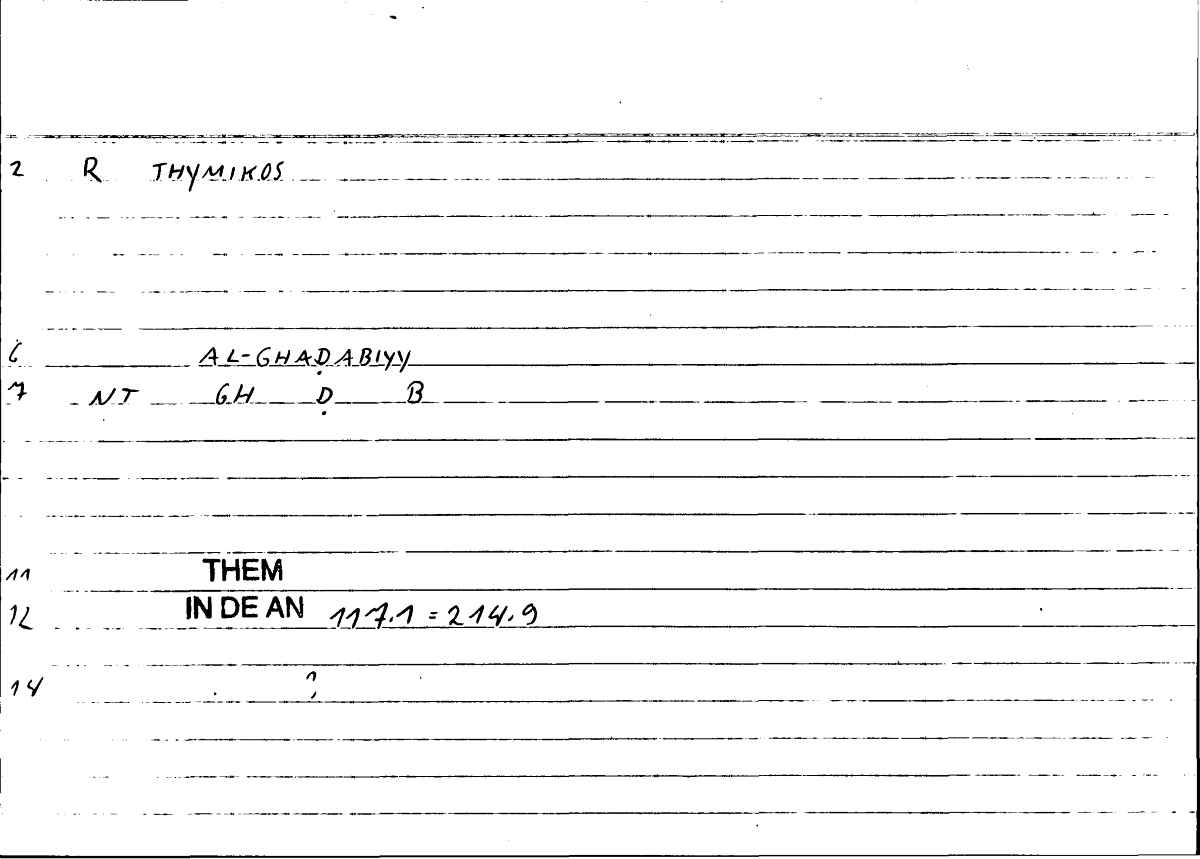 2 R THYMIKOS
6 AL-GHAḌABIYY
7 NT GH Ḍ B
11 THEM
12 IN DE AN 117.1 = 214.9
14 ?